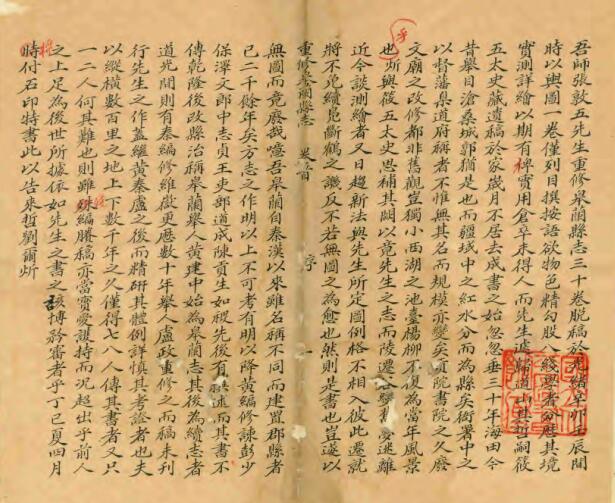 吾師張敦五先生重修皋蘭縣志三十卷脫稿於光緒辛卯壬辰間
時以輿圖一卷僅列目撰按語欲物色精勾股八綫學者分歷其境
實測詳繪以期有裨實用倉卒未得人而先生遽歸道山其哲嗣筱
五太史藏遺稿於家歲月不居去成書之始忽忽垂三十年海田今
昔舉目滄桑城郭猶是也而疆域中之紅水分而為縣矣衙署中之
以督藩臬道府稱者不惟無其名而規模亦變矣貢院書院之久廢
文廟之改修都非舊觀豈獨小西湖之池臺楊柳不復為當年風景
也乎斯與筱五太史思補其闕以竟先生之志而陵遷谷變積夢迷離
近今談測繪者又日趨新法與先生所定圖例格不相入彼此遷就
將不免續鳧斷鶴之譏反不若無圖之為愈也然則是書也豈遂以
重修皋蘭縣志 卷首 序
無圖而竟廢哉噫吾皋蘭自秦漢以來雖名稱不同而建置郡縣者
已二千餘年矣方志之作明以上不可考有明以降黃編修諫彭少
保澤文郎中志貞王吏部道成陳貢生如稷先後有譔述而其書不
傳乾隆後改縣治稱皋蘭舉人黃建中始為皋蘭志其後為續志者
道光間則有秦編修維嶽更歷數十年舉人盧政重修之而稿未刊
行先生之作蓋繼黃秦盧之後而精研其體例詳慎其考證者也夫
以縱橫數百里之地上下數千年之久僅得七八人傳其書者又只
一二人何其難也則雖殘編賸稿亦當寶愛護持而況超出乎前人
之上足為後世所據依如先生之書之該博矜審者乎丁巳夏四月
將付石印特書此以告來哲劉爾炘